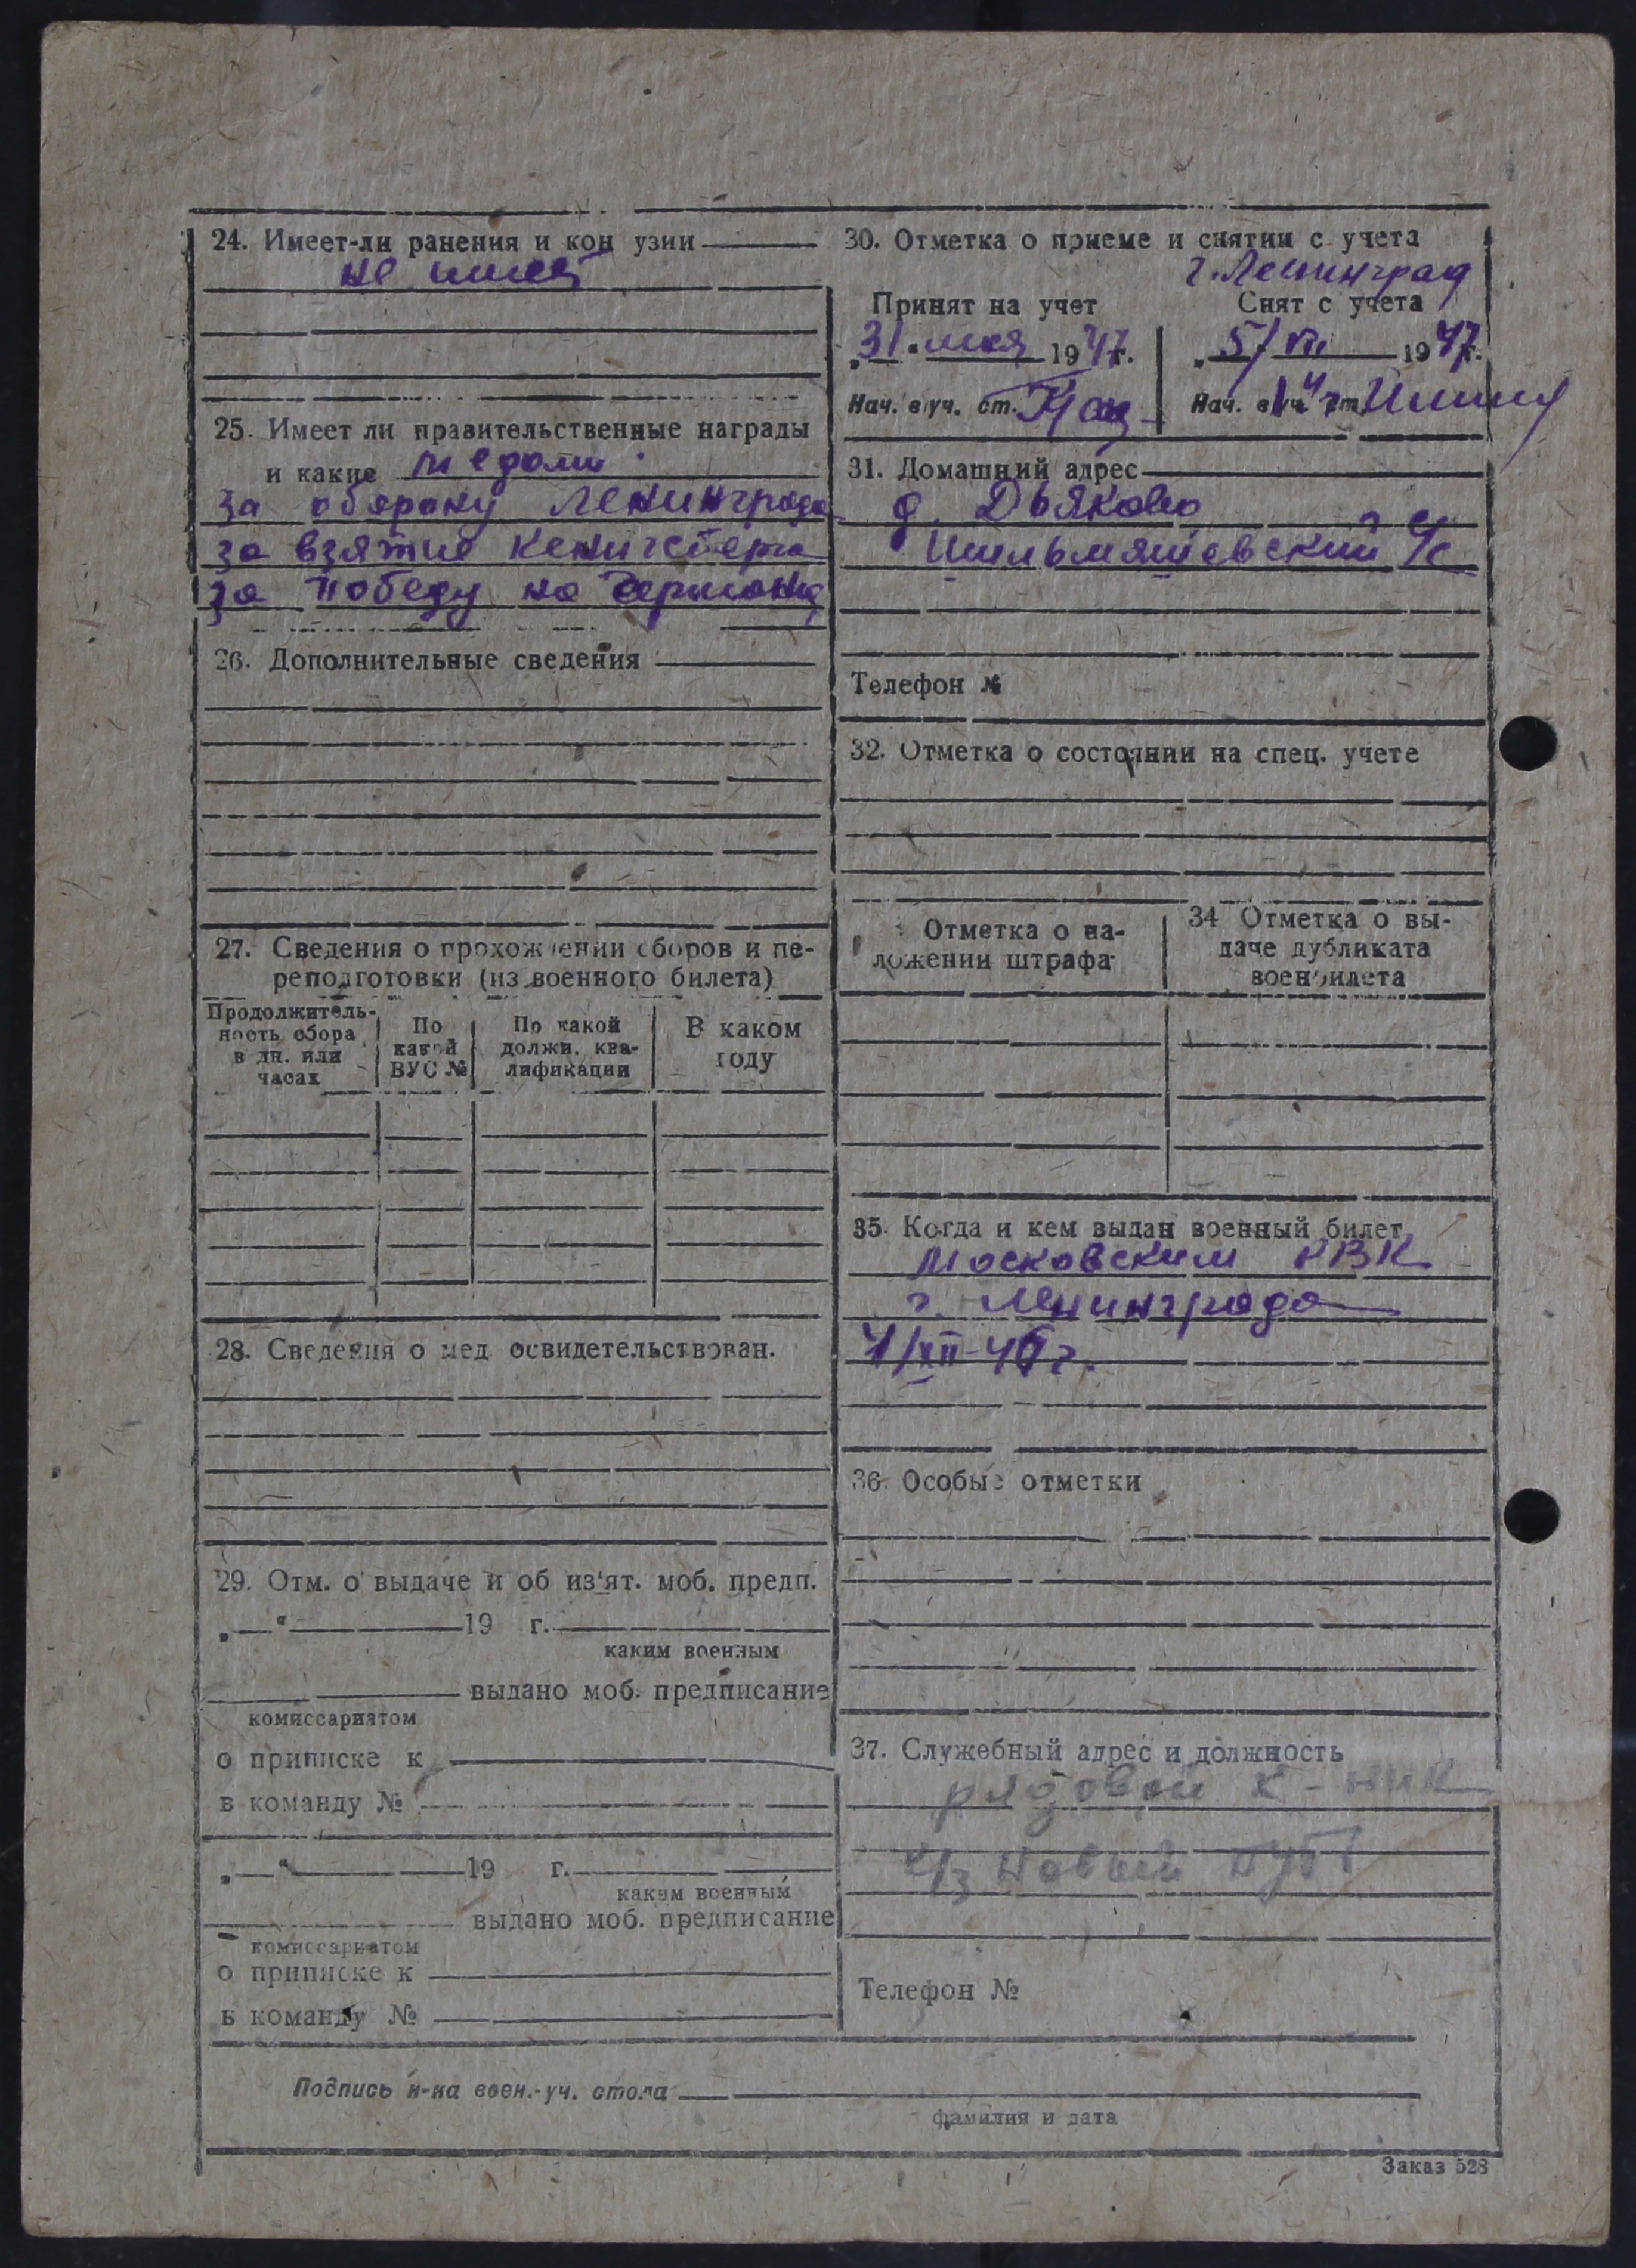 24. Имеет-ли ранения и кон узии
не имеет
25. Имеет ли правительственные награды
и какие медали
за оборону Ленинграда
за взятие Кенигсберга
за победу на Германией
26. Дополнительные сведения
27. Сведения о прохождении сборов и пе-
реподготовки (из военного билета)
Продолжитель-
ность сбора
в дн. или
часах
По
какой
ВУС №
По какой
должн. ква-
лификации
В каком
году
28. Сведения о мед освидетельствован.
29. Отм. о выдаче и об из'ят. моб. предп.
„ “ 19 г.
каким военным
выдано моб. предписание
комиссариатом
о приписке к
в команду №
„ “ 19 г.
каким военным
выдано моб. предписание
комиссариатом
о приписке к
в команду №
30. Отметка о приеме и снятии с учета
г. Ленинград
Принят на учет
Снят с учета
„31“ мая 1947г.
„5/VII 1947г.
Нач. в/уч. ст.
Нач. в/уч. ст.
31. Домашний адрес
д. Дьяково
с/с
Телефон №
32. Отметка о состоянии на спец. учете
Отметка о на-
ложении штрафа
34 Отметка о вы-
даче дубликата
военбилета
35. Когда и кем выдан военный билет
Московским РВК
г. Ленинграда
36. Особые отметки
37. Служебный адрес и должность
рядовой к-ник
к/з Новый путь
Телефон №
Подпись н-ка воен.-уч. стола
фамилия и дата
Заказ 528